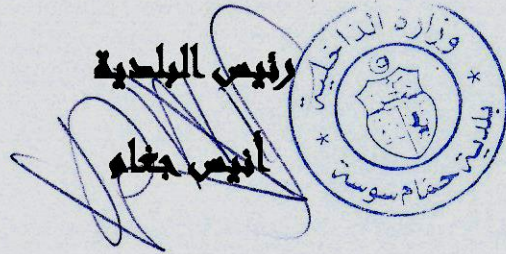 رئيس البلدية
أنيس جغام
وزارة الداخلية
* بلدية حمام سوسة *